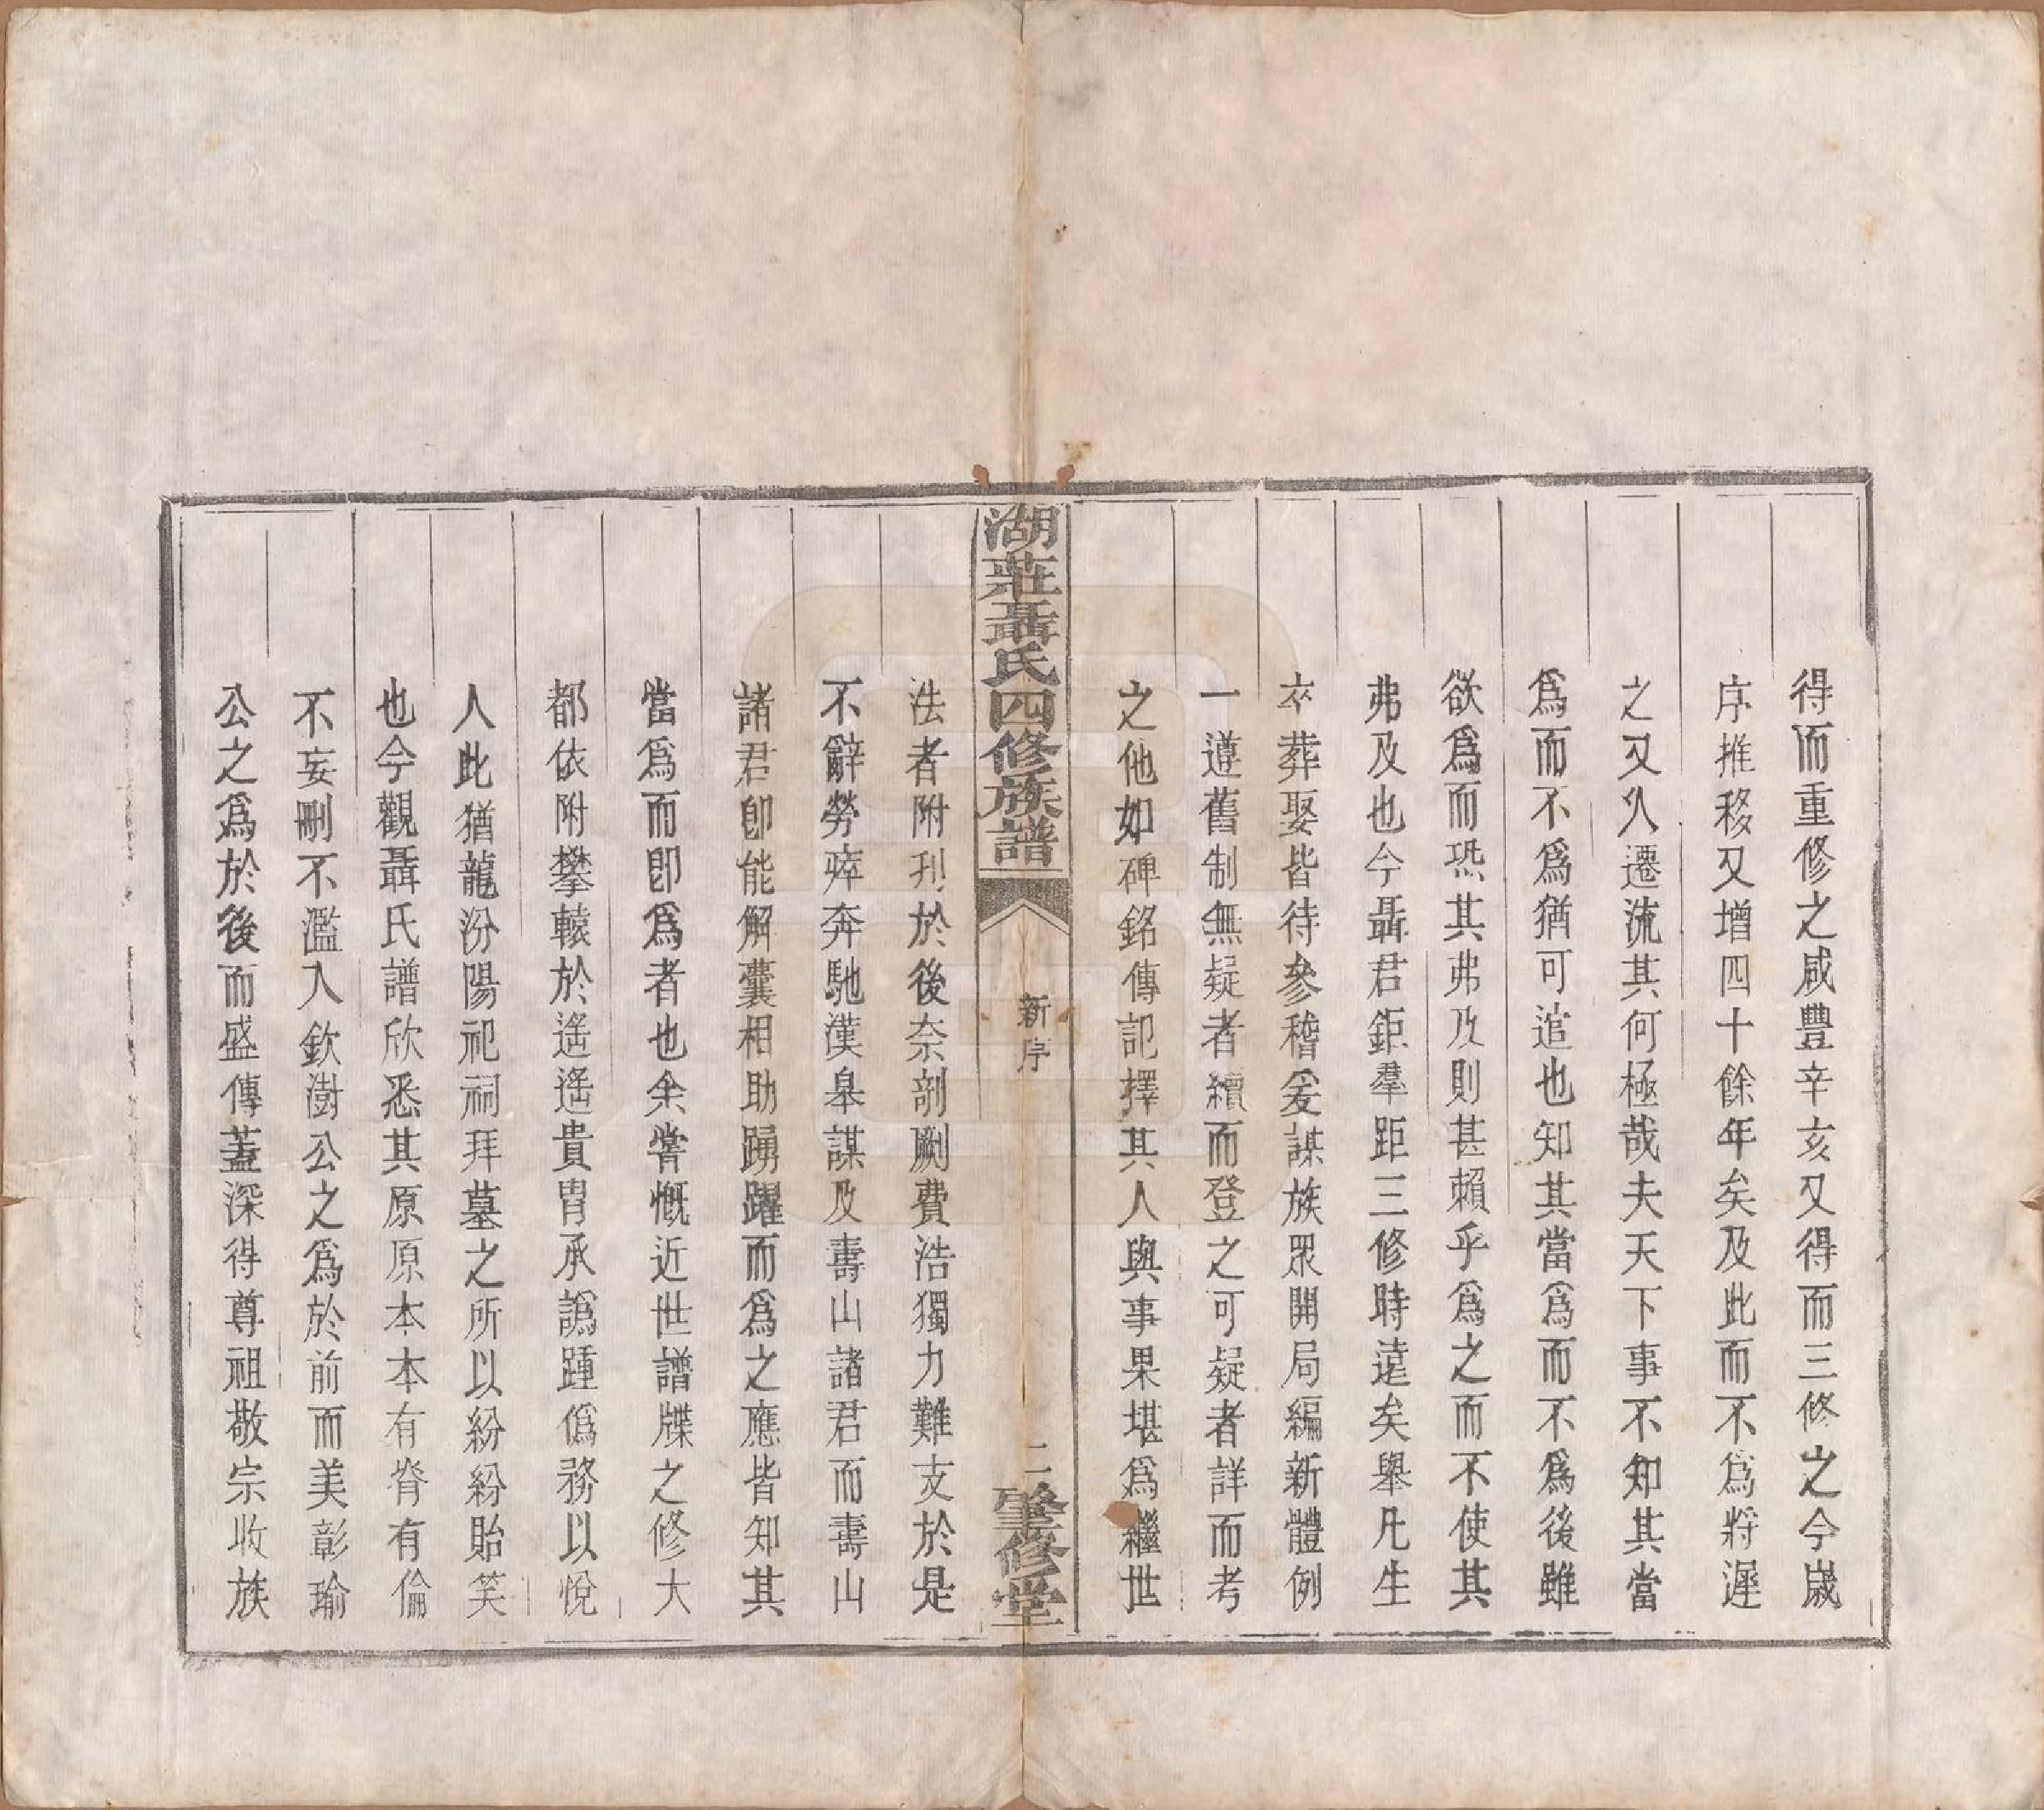 得而重修之咸豐辛亥又得而三修之今歲
序推移又增四十餘年矣及此而不爲將遲
之又久遷流其何極哉夫天下事不知其當
爲而不爲猶可追也知其當爲而不爲後雖
欲爲而恐其弗及則甚賴乎爲之而不使其
弗及也今聶君鉅羣距三修時遠矣舉凡生
卒葬娶皆待參稽爰謀族眾開局編新體例
一遵舊制無疑者續而登之可疑者詳而考
之他如碑銘傳記擇其人與事果堪爲繼世
湖莊聶氏四修族譜
新序
二
肇修堂
法者附刋於後奈剞劂費浩獨力難支於是
不辭勞瘁奔馳漢皋謀及壽山諸君而壽山
諸君卽能解囊相助踴躍而爲之應皆知其
當爲而卽爲者也余嘗慨近世譜牒之修大
都依附攀轅於遙遙貴胄承譌踵僞務以悅
人此猶龍汾陽祀祠拜墓之所以紛紛貽笑
也今觀聶氏譜欣悉其原原本本有脊有倫
不妄刪不濫入欽澍公之爲於前而美彰瑜
公之爲於後而盛傳蓋深得尊祖敬宗收族